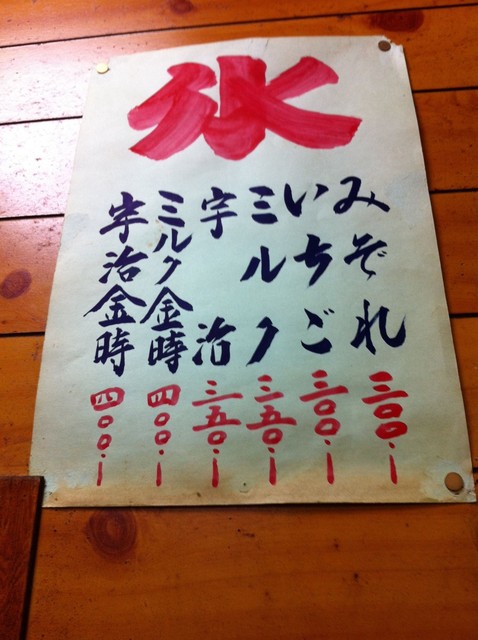 氷
みぞれ 三〇〇.ー
いちご 三〇〇.ー
ミルク 三五〇.ー
宇治 三五〇.ー
ミルク金時 四〇〇.ー
宇治金時 四〇〇.ー